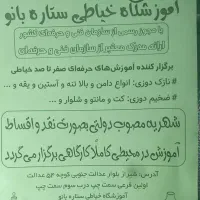 آموزشگاه خیاطی ستاره بانو
با مجوز رسمی از سازمان فنی و حرفه‌ای کشور
ارائه مدرک معتبر از سازمان فنی و حرفه‌ای
برگزار کننده آموزش‌های حرفه‌ای صفر تا صد خیاطی
# نازک دوزی: انواع دامن و بالا تنه و آستین و یقه و ...
# ضخیم دوزی: کت و مانتو و شلوار و ...
شهریه مصوب دولتی بصورت نقد و اقساط
آموزش در محیطی کاملا کارگاهی برگزار می‌گردد
آدرس: شیراز بلوار عدالت جنوبی کوچه ۵۳ عدالت
فرعی سمت چپ درب سوم سمت چپ
آموزشگاه خیاطی ستاره بانو